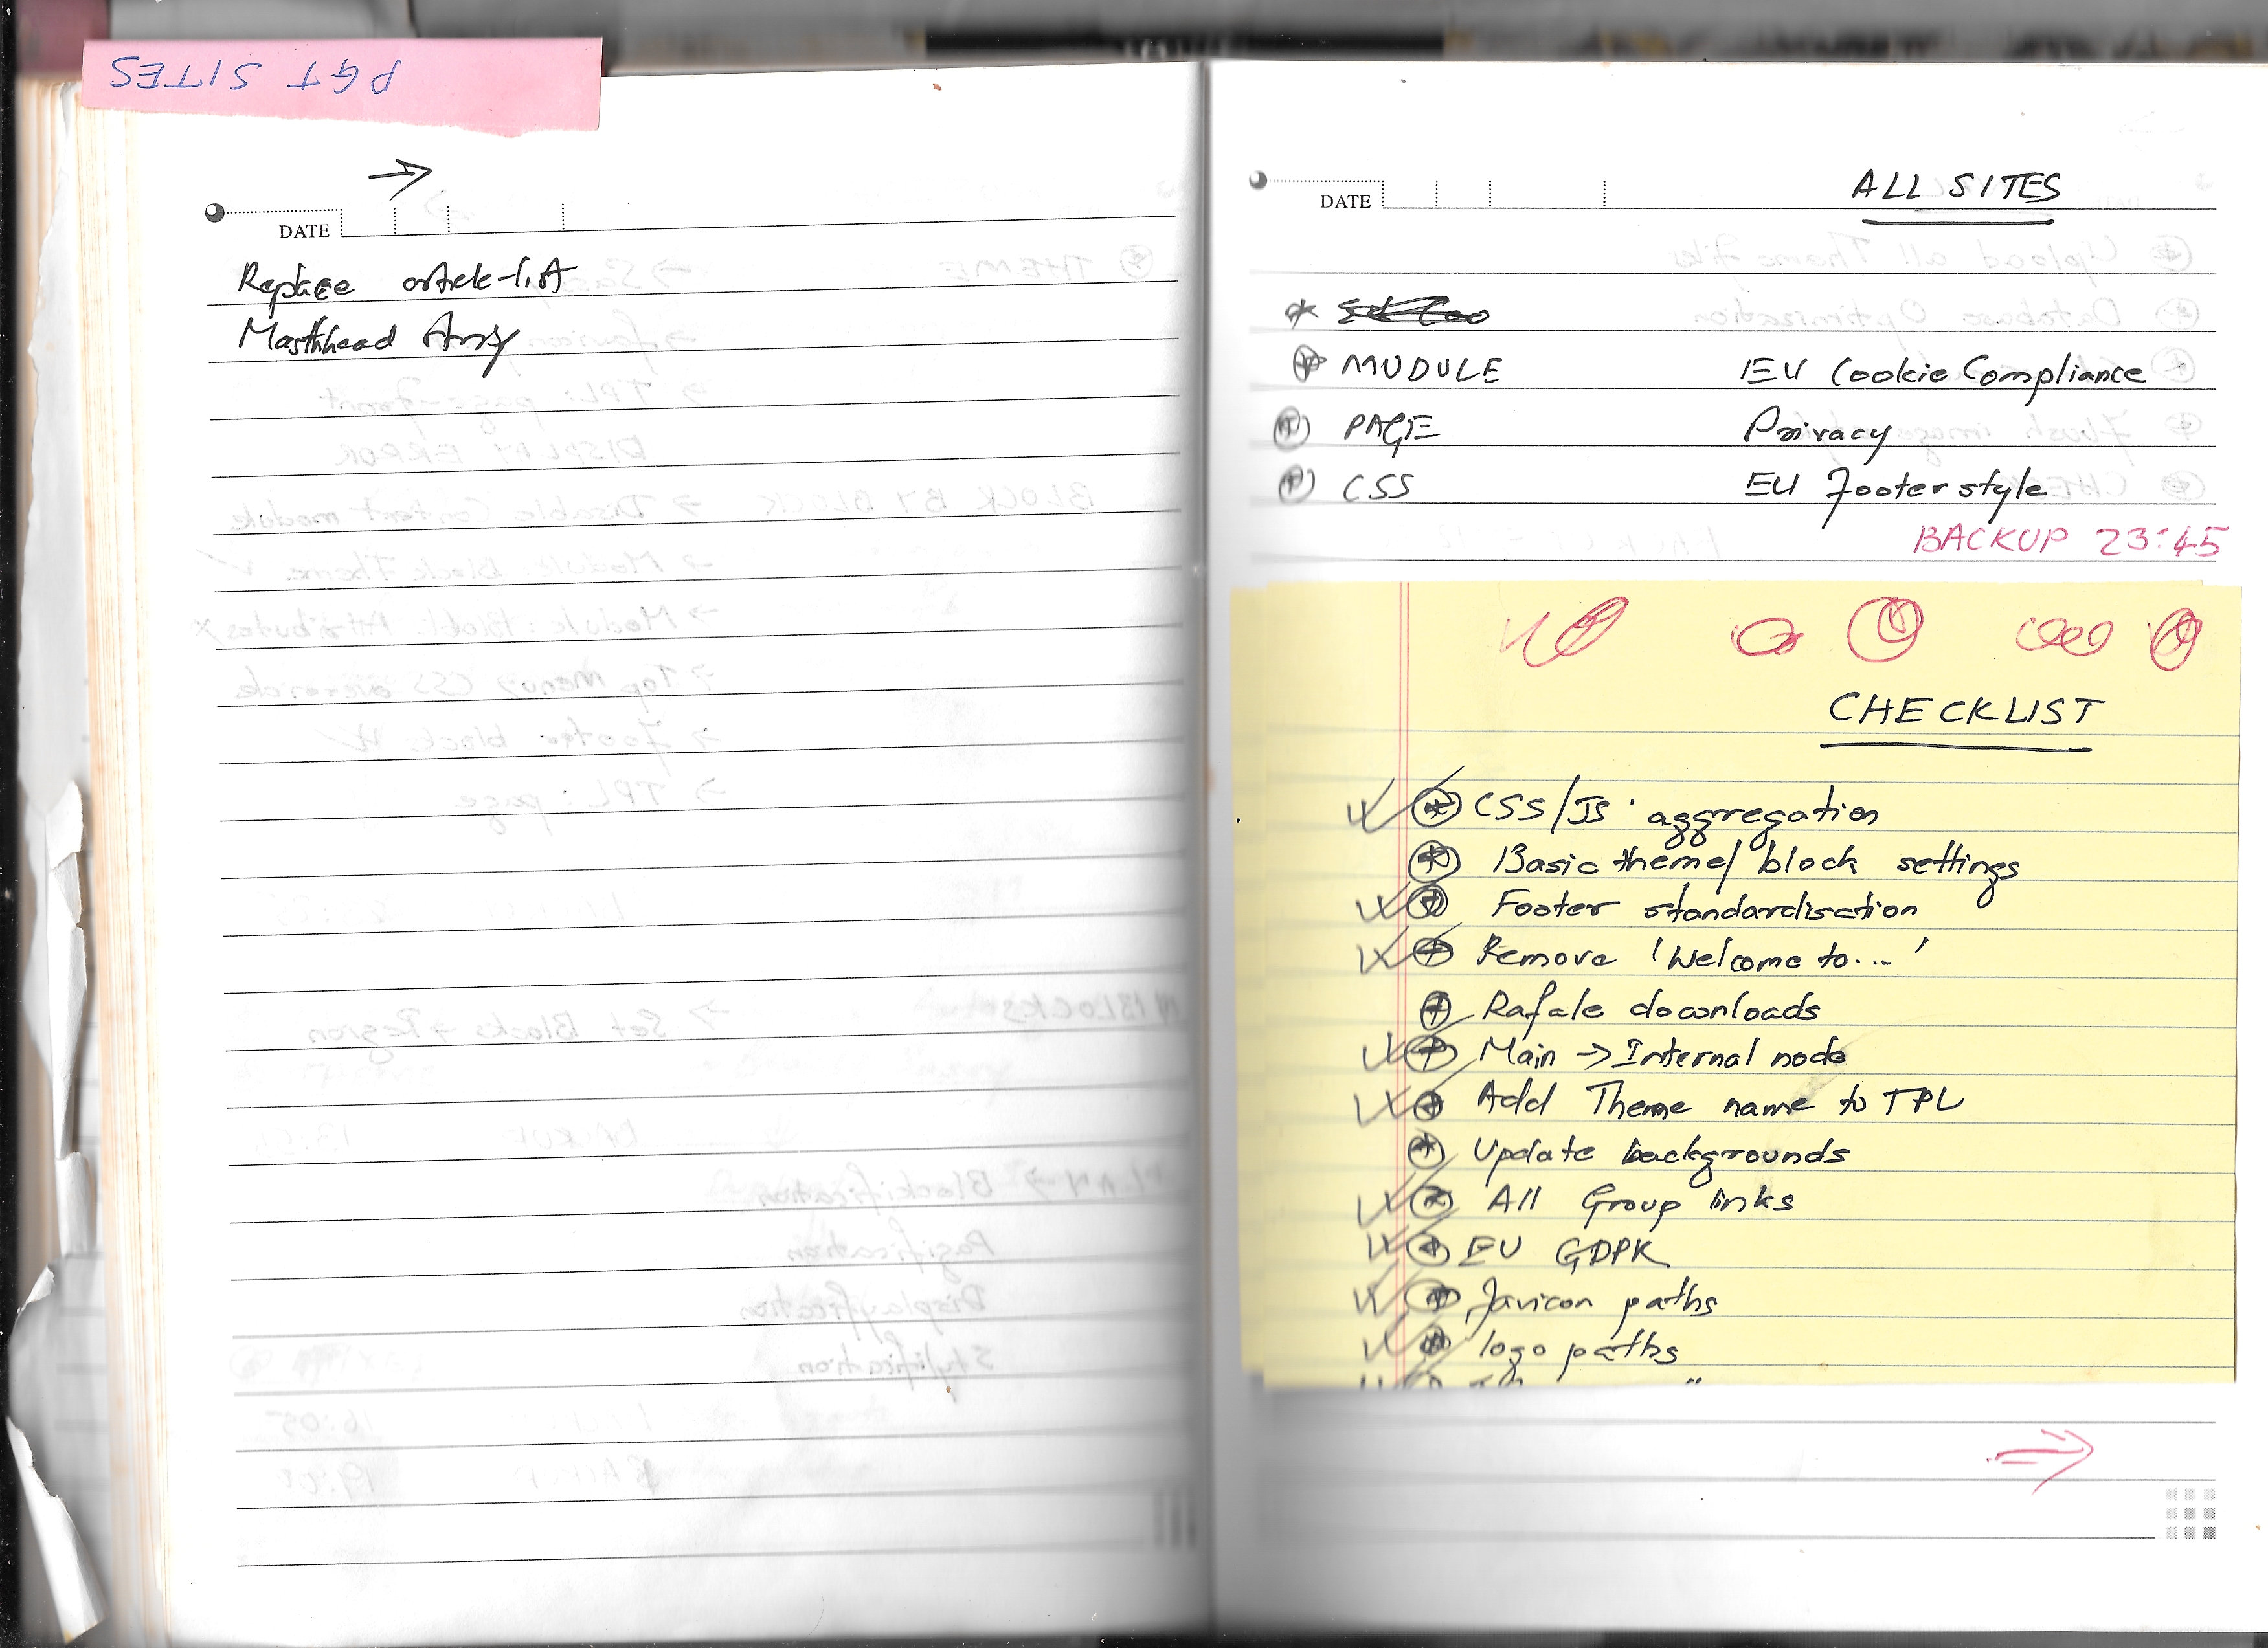 PGT SITES
→
DATE
Replace article-list
Masthhead Array
DATE
ALL SITES
MUDULE EU Cookie Compliance
PAGE Privacy
CSS EU Footer style
BACKUP 23:45
CHECKLIST
CSS/JS aggregation
Basic theme/block settings
Footer standardisation
Remove 'Welcome to...'
Rafale downloads
Main → Internal node
Add Theme name to TPL
Update backgrounds
All Group links
EU GDPR
Favicon paths
logo paths
→